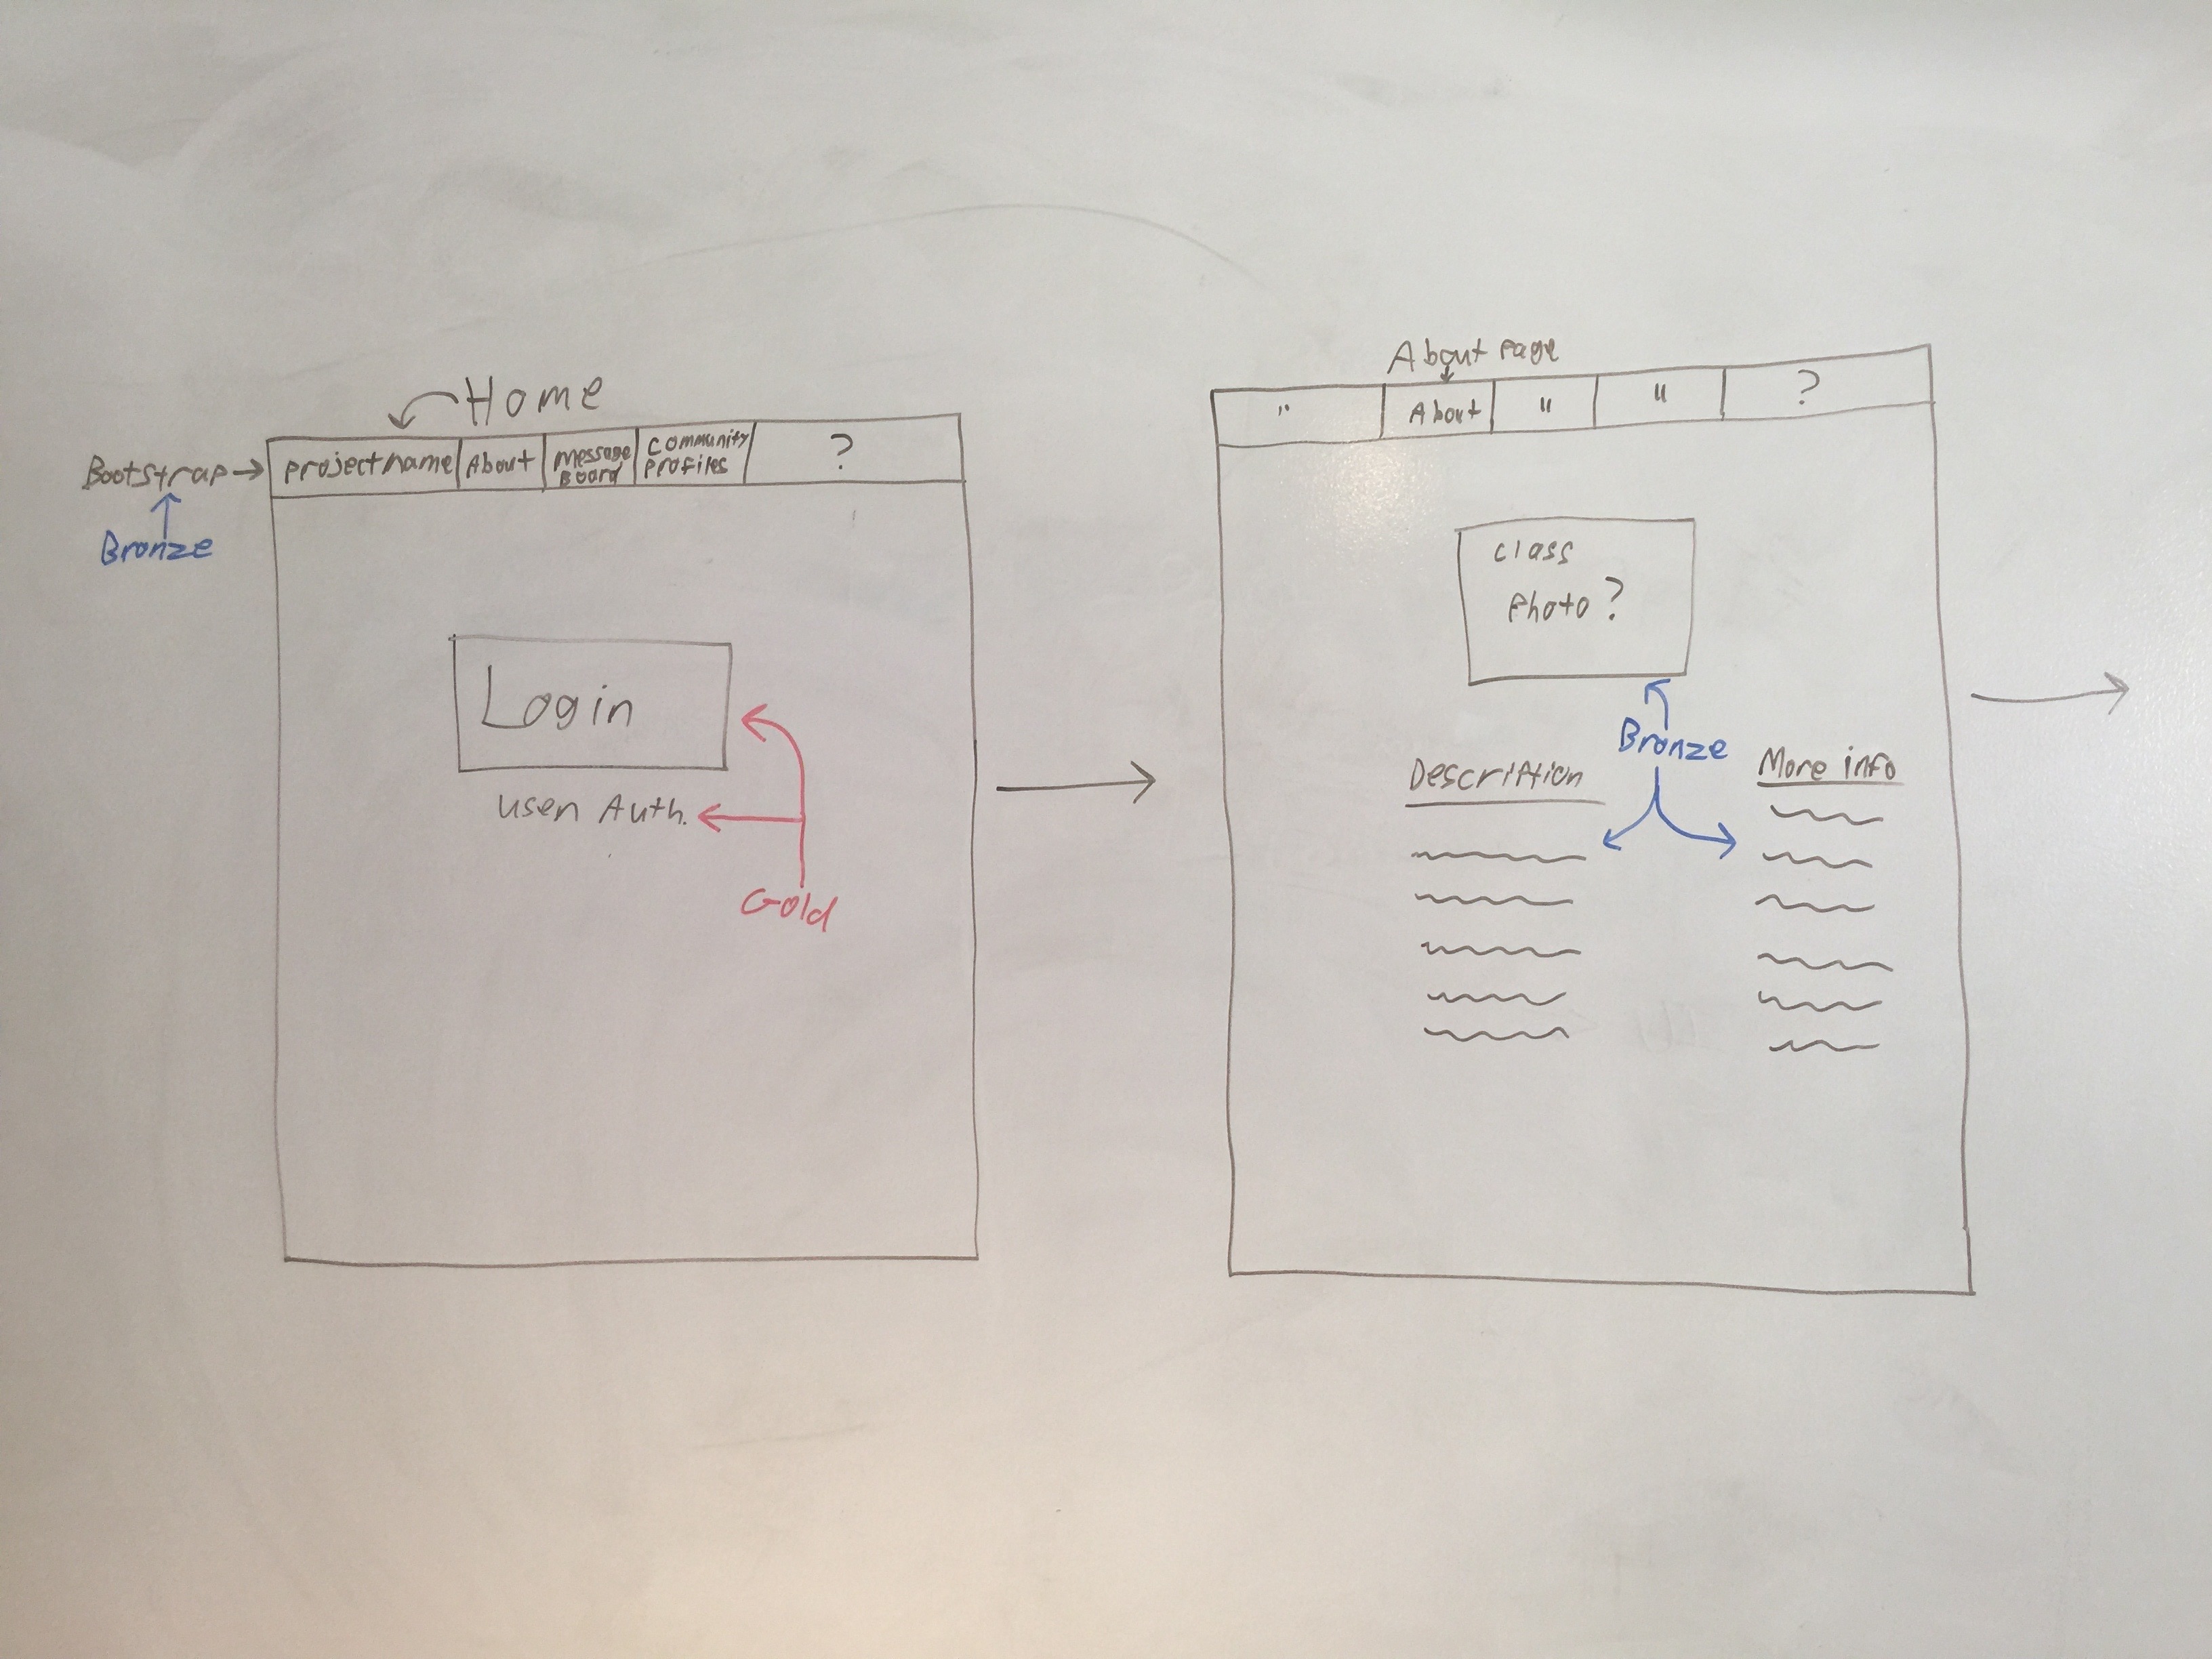 Home
Bootstrap
Bronze
projectname
About
Message
Board
Community
Profiles
?
Login
User Auth.
Gold
About Page
"
About
"
"
?
Class
Photo?
Bronze
Description
More info